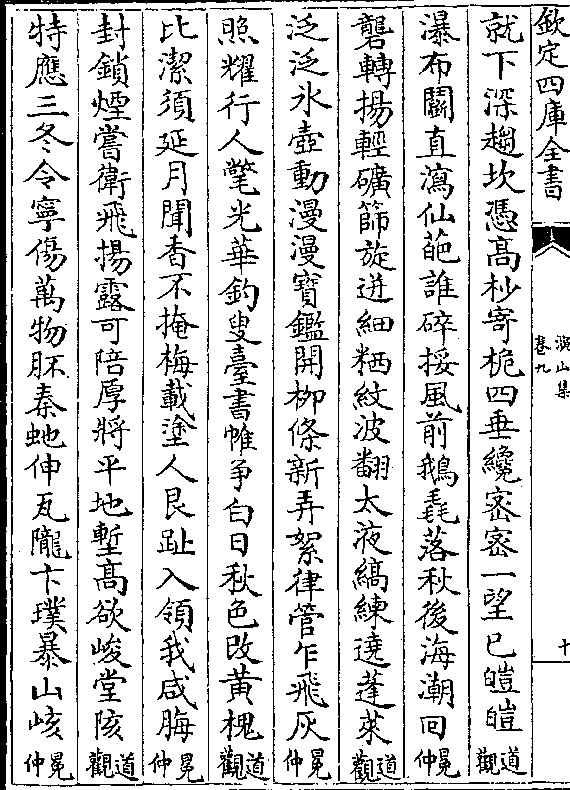 欽定四庫全書
演山集
卷九
十
就下深趨坎憑髙杪寄桅四垂纔宻宻一望已皚皚觀道
瀑布闗直瀉仙葩誰碎挼風前鵝毳落秋後海潮回仲冕
礱轉揚輕礦篩旋迸細粞紋波翻太液縞練遶蓬萊觀道
泛泛氷壺動漫漫寳鑑開柳條新弄絮律管乍飛灰仲冕
照耀行人氅光華釣叟臺書帷争白日秋色改黄槐觀道
比潔須延月聞香不掩梅載塗人艮趾入領我咸脢仲冕
封鎖煙嘗衛飛揚露可陪厚將平地塹髙欲峻堂陔觀道
特應三冬令寧傷萬物胚秦虵伸瓦隴卞璞暴山峐仲冕